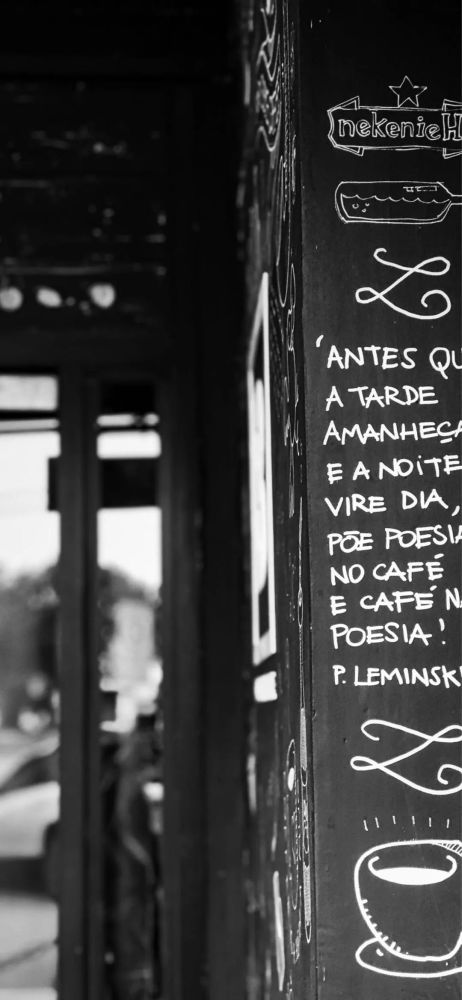 nekenieH
'ANTES QU
A TARDE
AMANHEÇA
E A NOiTE
VIRE DIA,
PÕE POESIA
NO CAFÉ
E CAFÉ NA
POESIA!
P. LEMINSKI